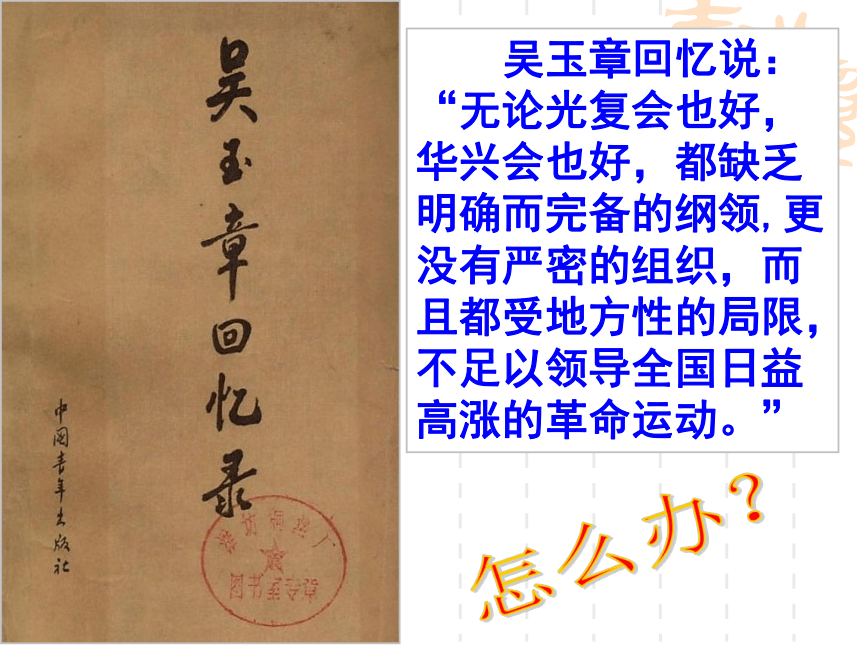 吴玉章回忆录
中国青年出版社
图书室专章
吴玉章回忆说：
“无论光复会也好，
华兴会也好，都缺乏
明确而完备的纲领,更
没有严密的组织，而
且都受地方性的局限，
不足以领导全国日益
高涨的革命运动。”
怎么办？